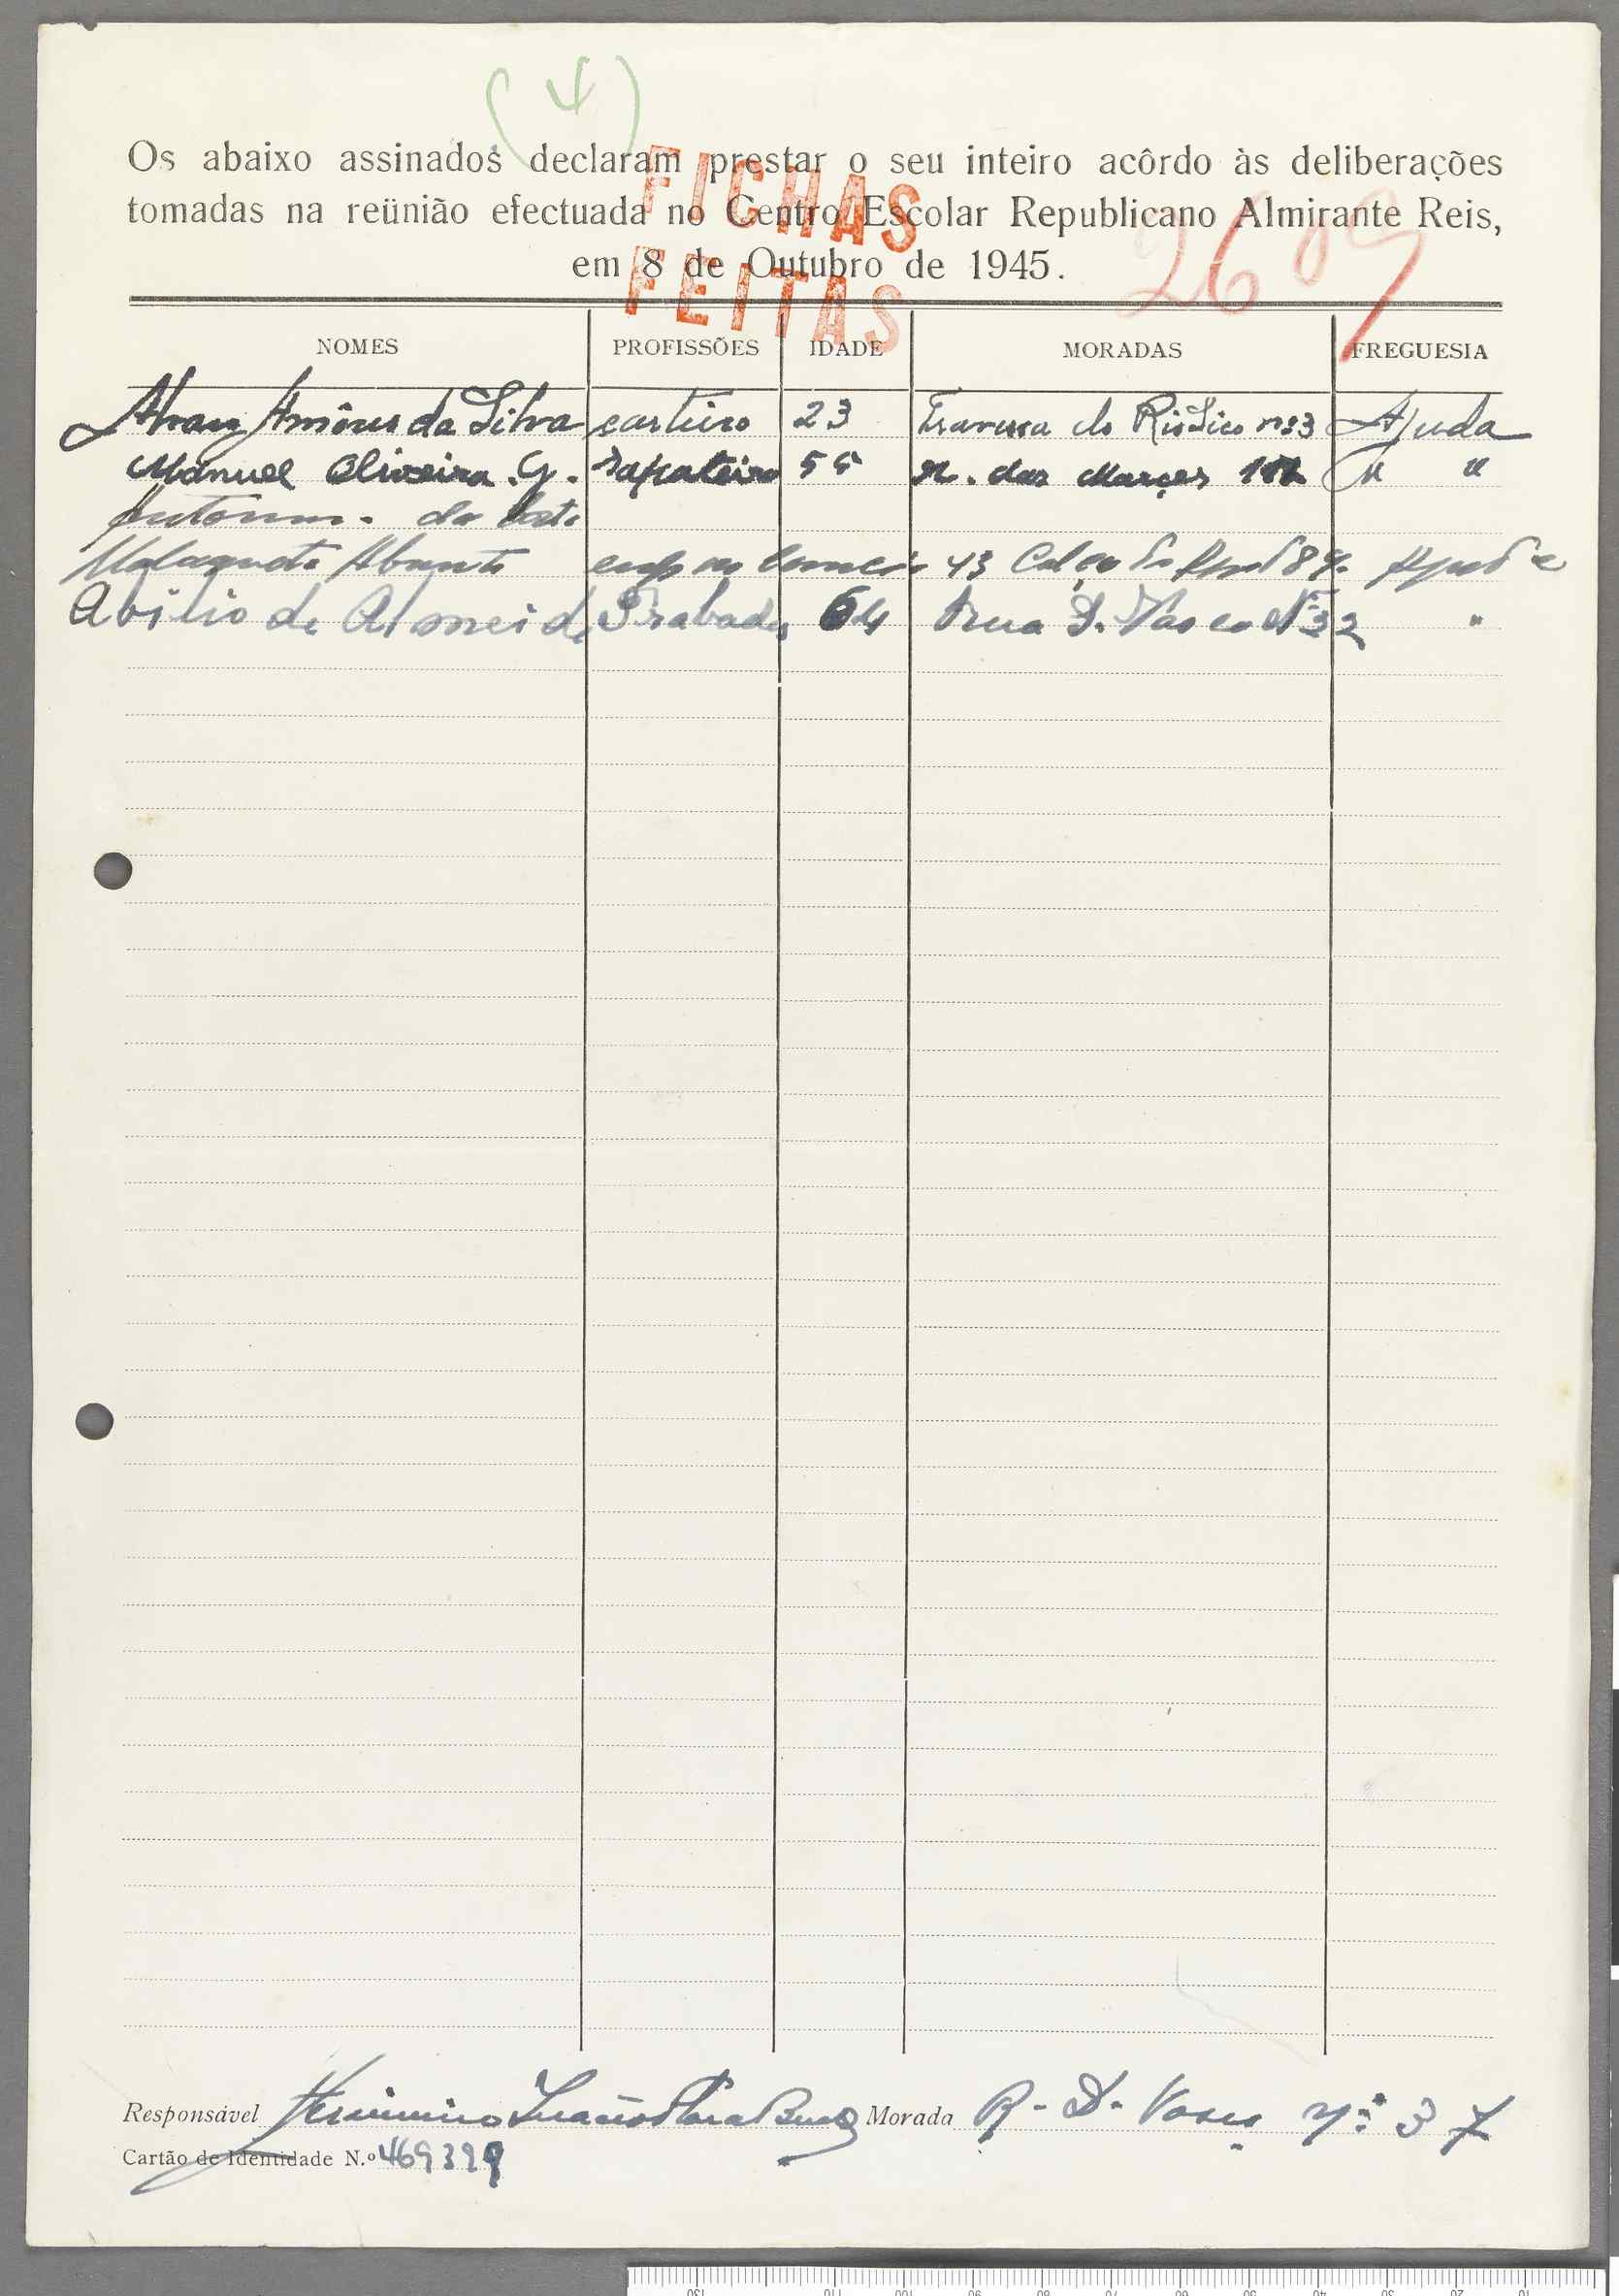 (4)
Os abaixo assinados declaram prestar o seu inteiro acôrdo às deliberações
tomadas na reünião efectuada no Centro Escolar Republicano Almirante Reis,
em 8 de Outubro de 1945.
FICHAS
FEITAS
2609
NOMES PROFISSÕES IDADE MORADAS FREGUESIA
da Silva carteiro 23 Travessa do Rio Sêco nº 3 Ajuda
Manuel Oliveira G. Sapateiro 55 R. das Marçes " "
Abrantes emp no comercio 43 Ajuda
Abilio de Almeida Trabador 64 Rua D. Vasco Nº 32 "
Responsável Morada R. D. Vasco nº 37
Cartão de Identidade N.º 469399